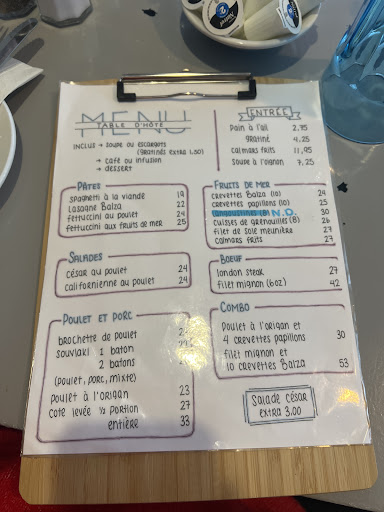 MENU
TABLE D'HÔTE
INCLUS → SOUPE OU ESCARGOTS
(GRATINÉS EXTRA 1.50)
→ CAFÉ OU INFUSION
→ DESSERT
ENTRÉE
PAIN À L'AIL 2,75
GRATINÉ 4,25
CALMARS FRITS 11,95
SOUPE À L'OGNON 7,25
PÂTES
SPAGHETTI À LA VIANDE 19
LASAGNE BALZA 22
FETTUCCINI AU POULET 24
FETTUCCINI AUX FRUITS DE MER 25
SALADES
CÉSAR AU POULET 24
CALIFORNIENNE AU POULET 24
POULET ET PORC
BROCHETTE DE POULET
SOUVLAKI 1 BATON
2 BATONS
(POULET, PORC, MIXTE)
POULET À L'ORIGAN 23
COTE LEVÉE ½ PORTION 27
ENTIÈRE 33
FRUITS DE MER
CREVETTES BALZA (10) 24
CREVETTES PAPILLONS (10) 25
LANGOUSTINES (8) N.O. 30
CUISSES DE GRENOUILLES (8) 26
FILET DE SOLE MEUNIÈRE 27
CALMARS FRITS 27
BOEUF
LONDON STEAK 27
FILET MIGNON (6OZ) 42
COMBO
POULET À L'ORIGAN ET
4 CREVETTES PAPILLONS 30
FILET MIGNON ET
10 CREVETTES BALZA 53
SALADE CÉSAR
EXTRA 3.00